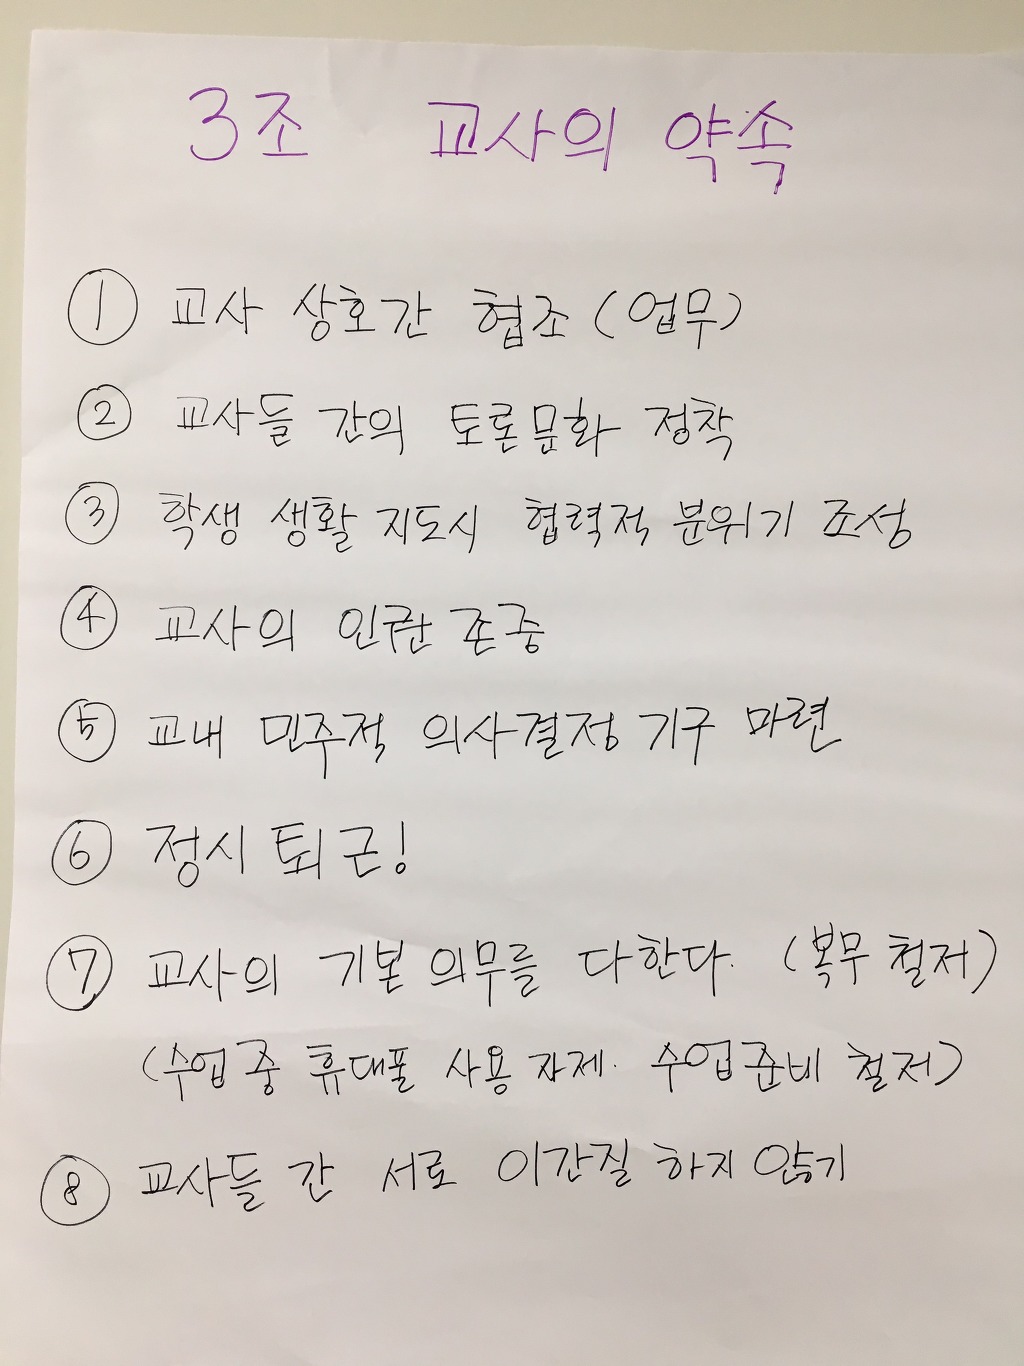 3조 교사의 약속
① 교사 상호간 협조 (업무)
② 교사들 간의 토론문화 정착
③ 학생 생활 지도시 협력적 분위기 조성
④ 교사의 인권 존중
⑤ 교내 민주적 의사결정 기구 마련
⑥ 정시 퇴근!
⑦ 교사의 기본 의무를 다한다. (복무 철저)
(수업 중 휴대폴 사용 자제. 수업준비 철저)
⑧ 교사들 간 서로 이간질 하지 않기